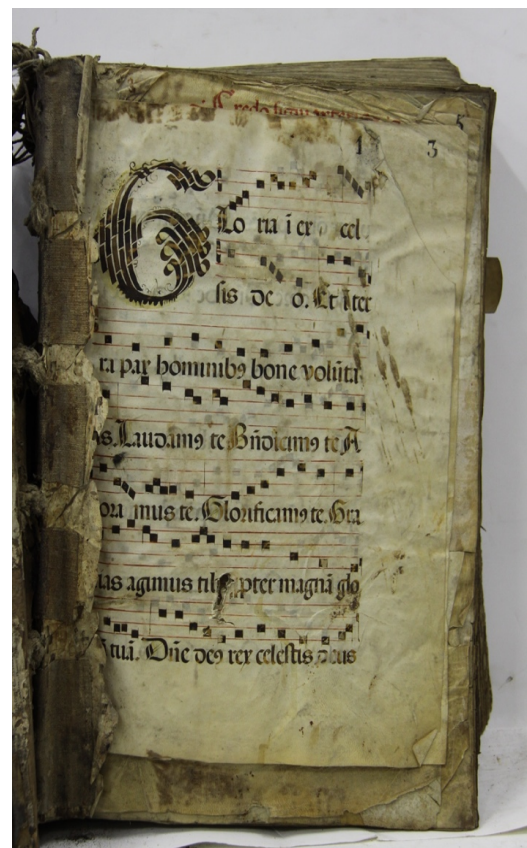 Credo
5
1 3
Glo ria ī ex cel
sis de o. Et ī ter
ra pax hominibꝰ bone volūta
is. Laudamꝰ te Bn̄dicimꝰ te A
ora mus te. Glorificamꝰ te. Gra
ias agimus tibi ꝓpter magnā glo
tuā. Dn̄e deꝰ rex celestis deus